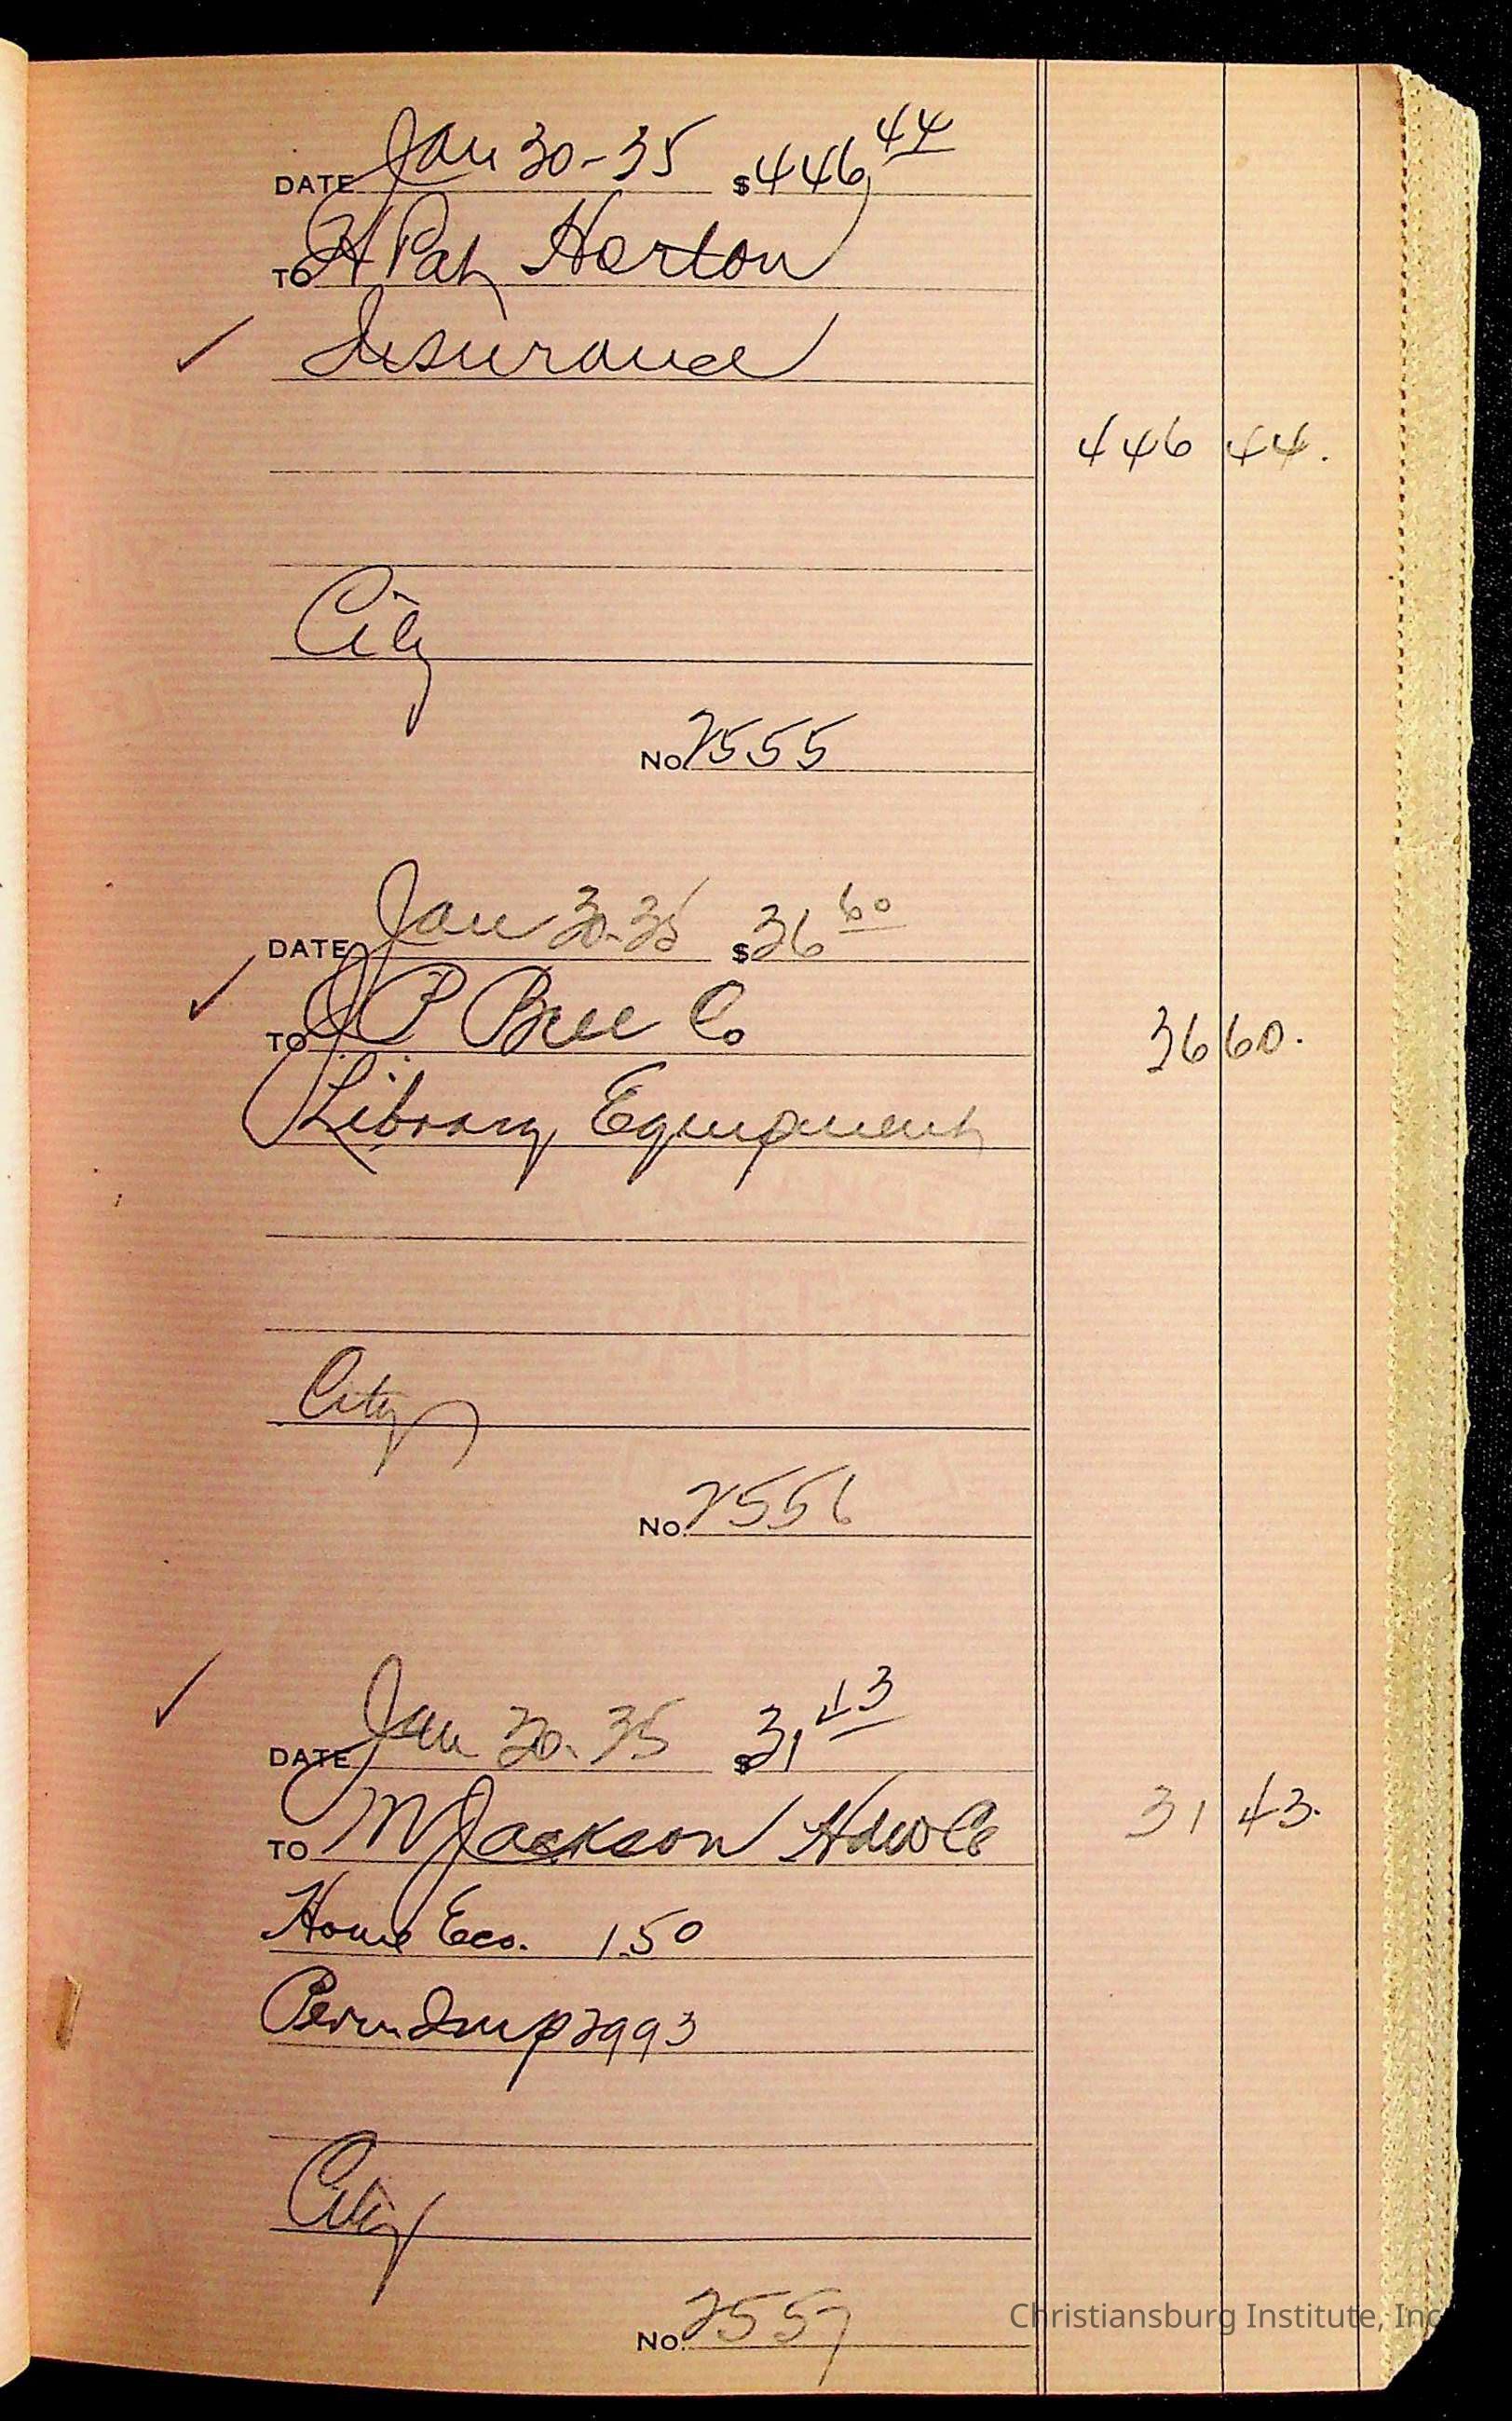 DATE Jan 30-35 $446.44
TO H Pat Horton
Insurance
446 44.
City
No. 2555
DATE Jan 30-35 $36 60
TO J P Bell Co
36 60.
Library Equipment
City
No. 2556
DATE Jan 30-35 $31 43
TO M Jackson Hdw Co
31 43.
Home Eco. 1.50
Perm Imp 2993
City
No. 2557
Christiansburg Institute, Inc